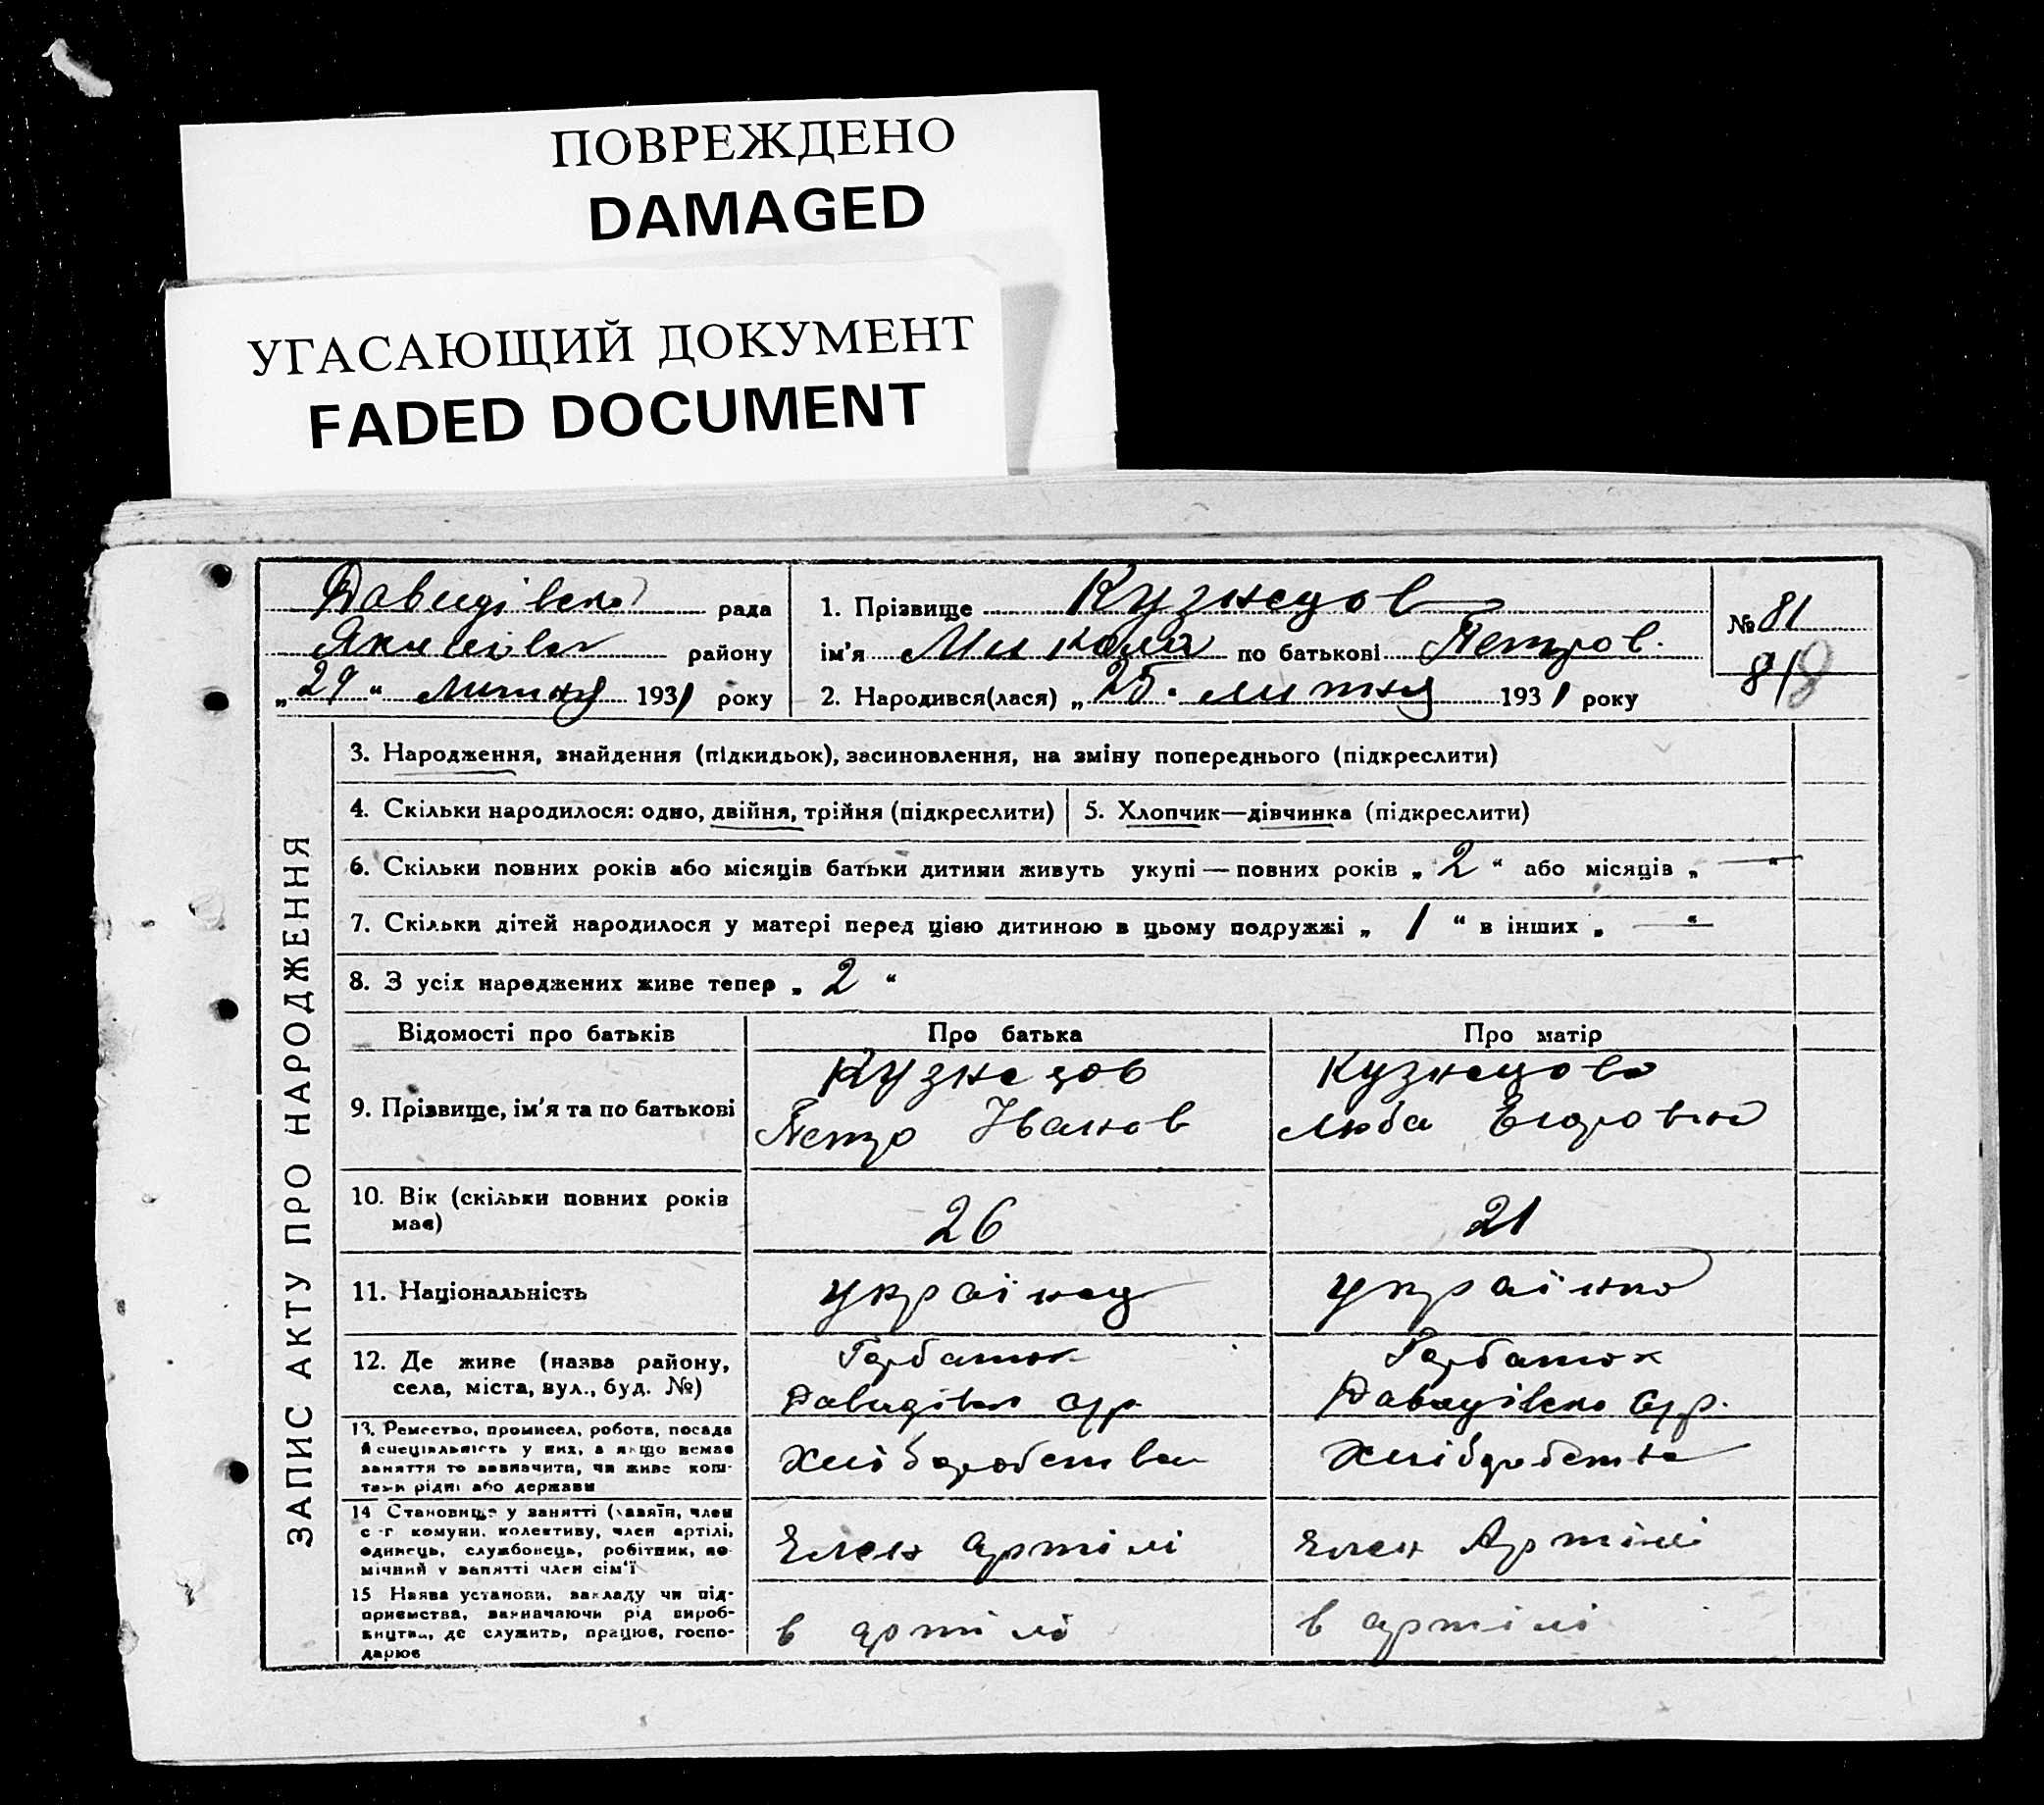 ПОВРЕЖДЕНО
DAMAGED
УГАСАЮЩИЙ ДОКУМЕНТ
FADED DOCUMENT
Давидівська рада
району
„29“ Липня 1931 року
1. Прізвище Кузнецов
ім'я Микола по батькові Петров.
2. Народився(лася) „25. липня 1931 року
№ 81
8/8
ЗАПИС АКТУ ПРО НАРОДЖЕННЯ
3. Народження, знайдення (підкидьок), засиновлення, на зміну попереднього (підкреслити)
4. Скільки народилося: одно, двійня, трійня (підкреслити)
5. Хлопчик—дівчинка (підкреслити)
6. Скільки повних років або місяців батьки дитини живуть укупі — повних років „ 2 “ або місяців „ — “
7. Скільки дітей народилося у матері перед цією дитиною в цьому подружжі „ 1 “ в інших „ — “
8. З усіх народжених живе тепер „ 2 “
Відомості про батьків
Про батька
Про матір
9. Прізвище, ім'я та по батькові
Кузнецов
Петро Іванов
Кузнецова
Люба Егоровна
10. Вік (скільки повних років має)
26
21
11. Національність
українец
українка
12. Де живе (назва району,
села, міста, вул., буд. №)
Горбатюк
Давидівська с/р.
Горбатюк
Давидівська с/р.
13. Ремество, промисел, робота, посада
й специяльність у них, а якщо немає
заняття то зазначити, чи живе кош-
тами рідні або держави
Хліборобство
Хліборобство
14 Становище у занятті (хазяїн, член
с-г комуни, колективу, член артілі,
одинець, службовець, робітник, по-
мічний у занятті член сім'ї
Член артілі
Член Артілі
15 Назва установи, закладу чи під-
приємства, зазначаючи рід вироб-
ництва, де служить, працює, госпо-
дарює
в артілі
в артілі